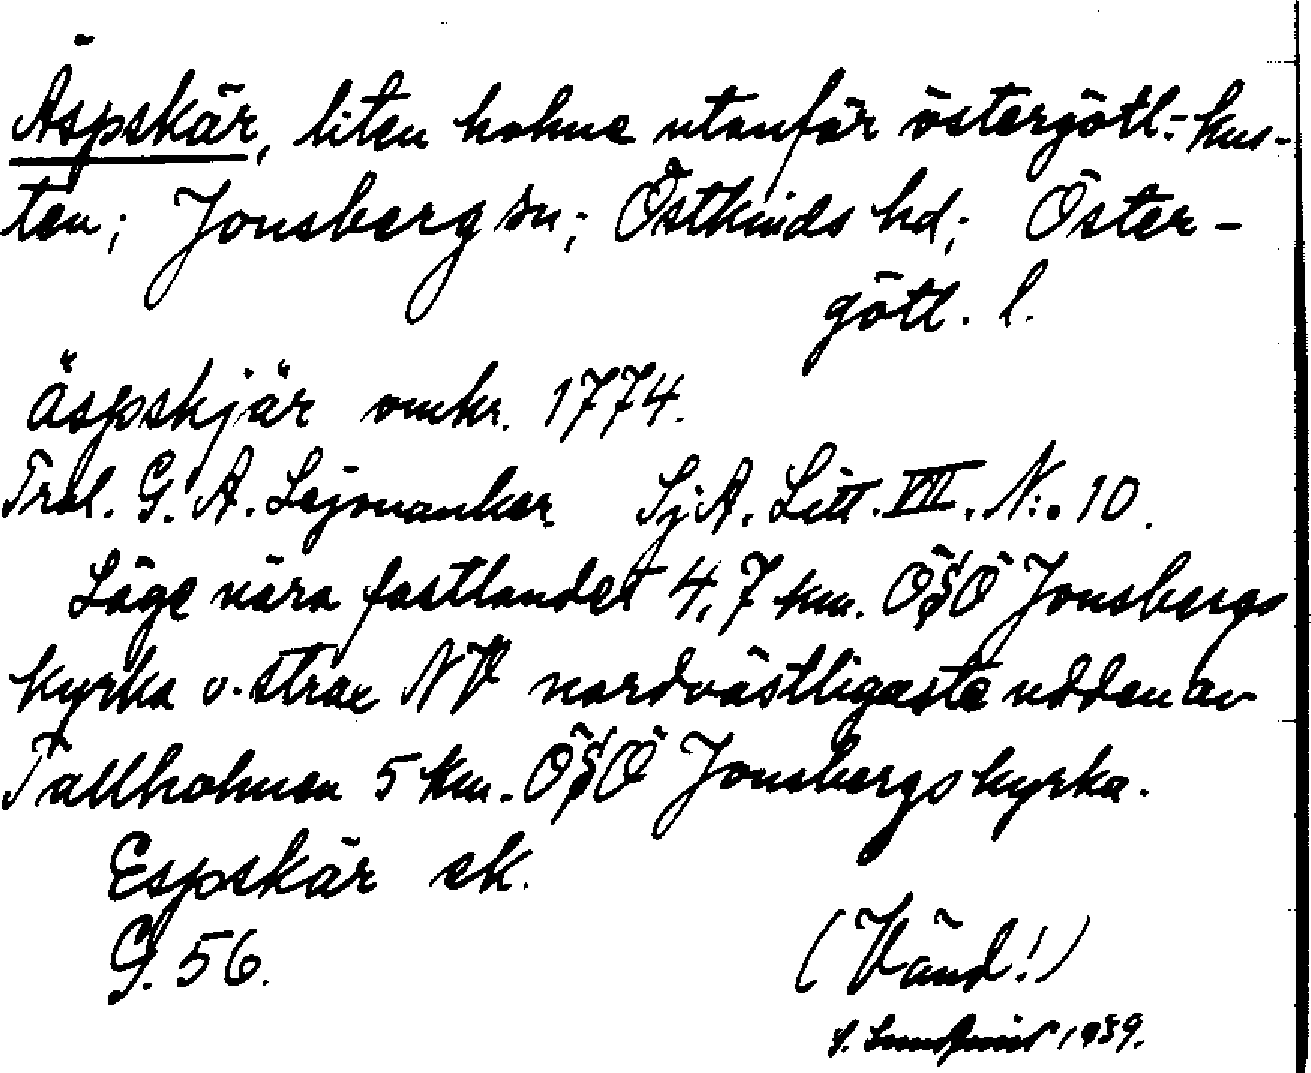 Äspskär, liten holme utanför östergötl.-kus-
ten; Jonsberg sn; Östkinds hd; Öster-
götl. l.
äspskjär omkr. 1774.
Trol. G. A. Lejonanker SjA. Litt. VII. N:o 10.
Läge nära fastlandet 4,7 km. ÖSÖ Jonsbergs
kyrka o. strax NV nordvästligaste udden av
Tallholmen 5 km. ÖSÖ Jonsbergs kyrka.
Espskär ek.
G. 56.
(Vänd!)
S. Lundqvist 1939.